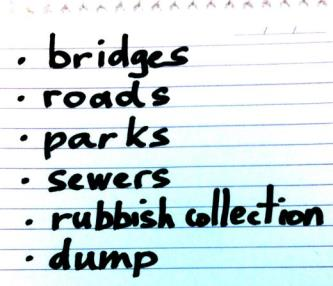 · bridges
· roads
· parks
· sewers
· rubbish collection
· dump